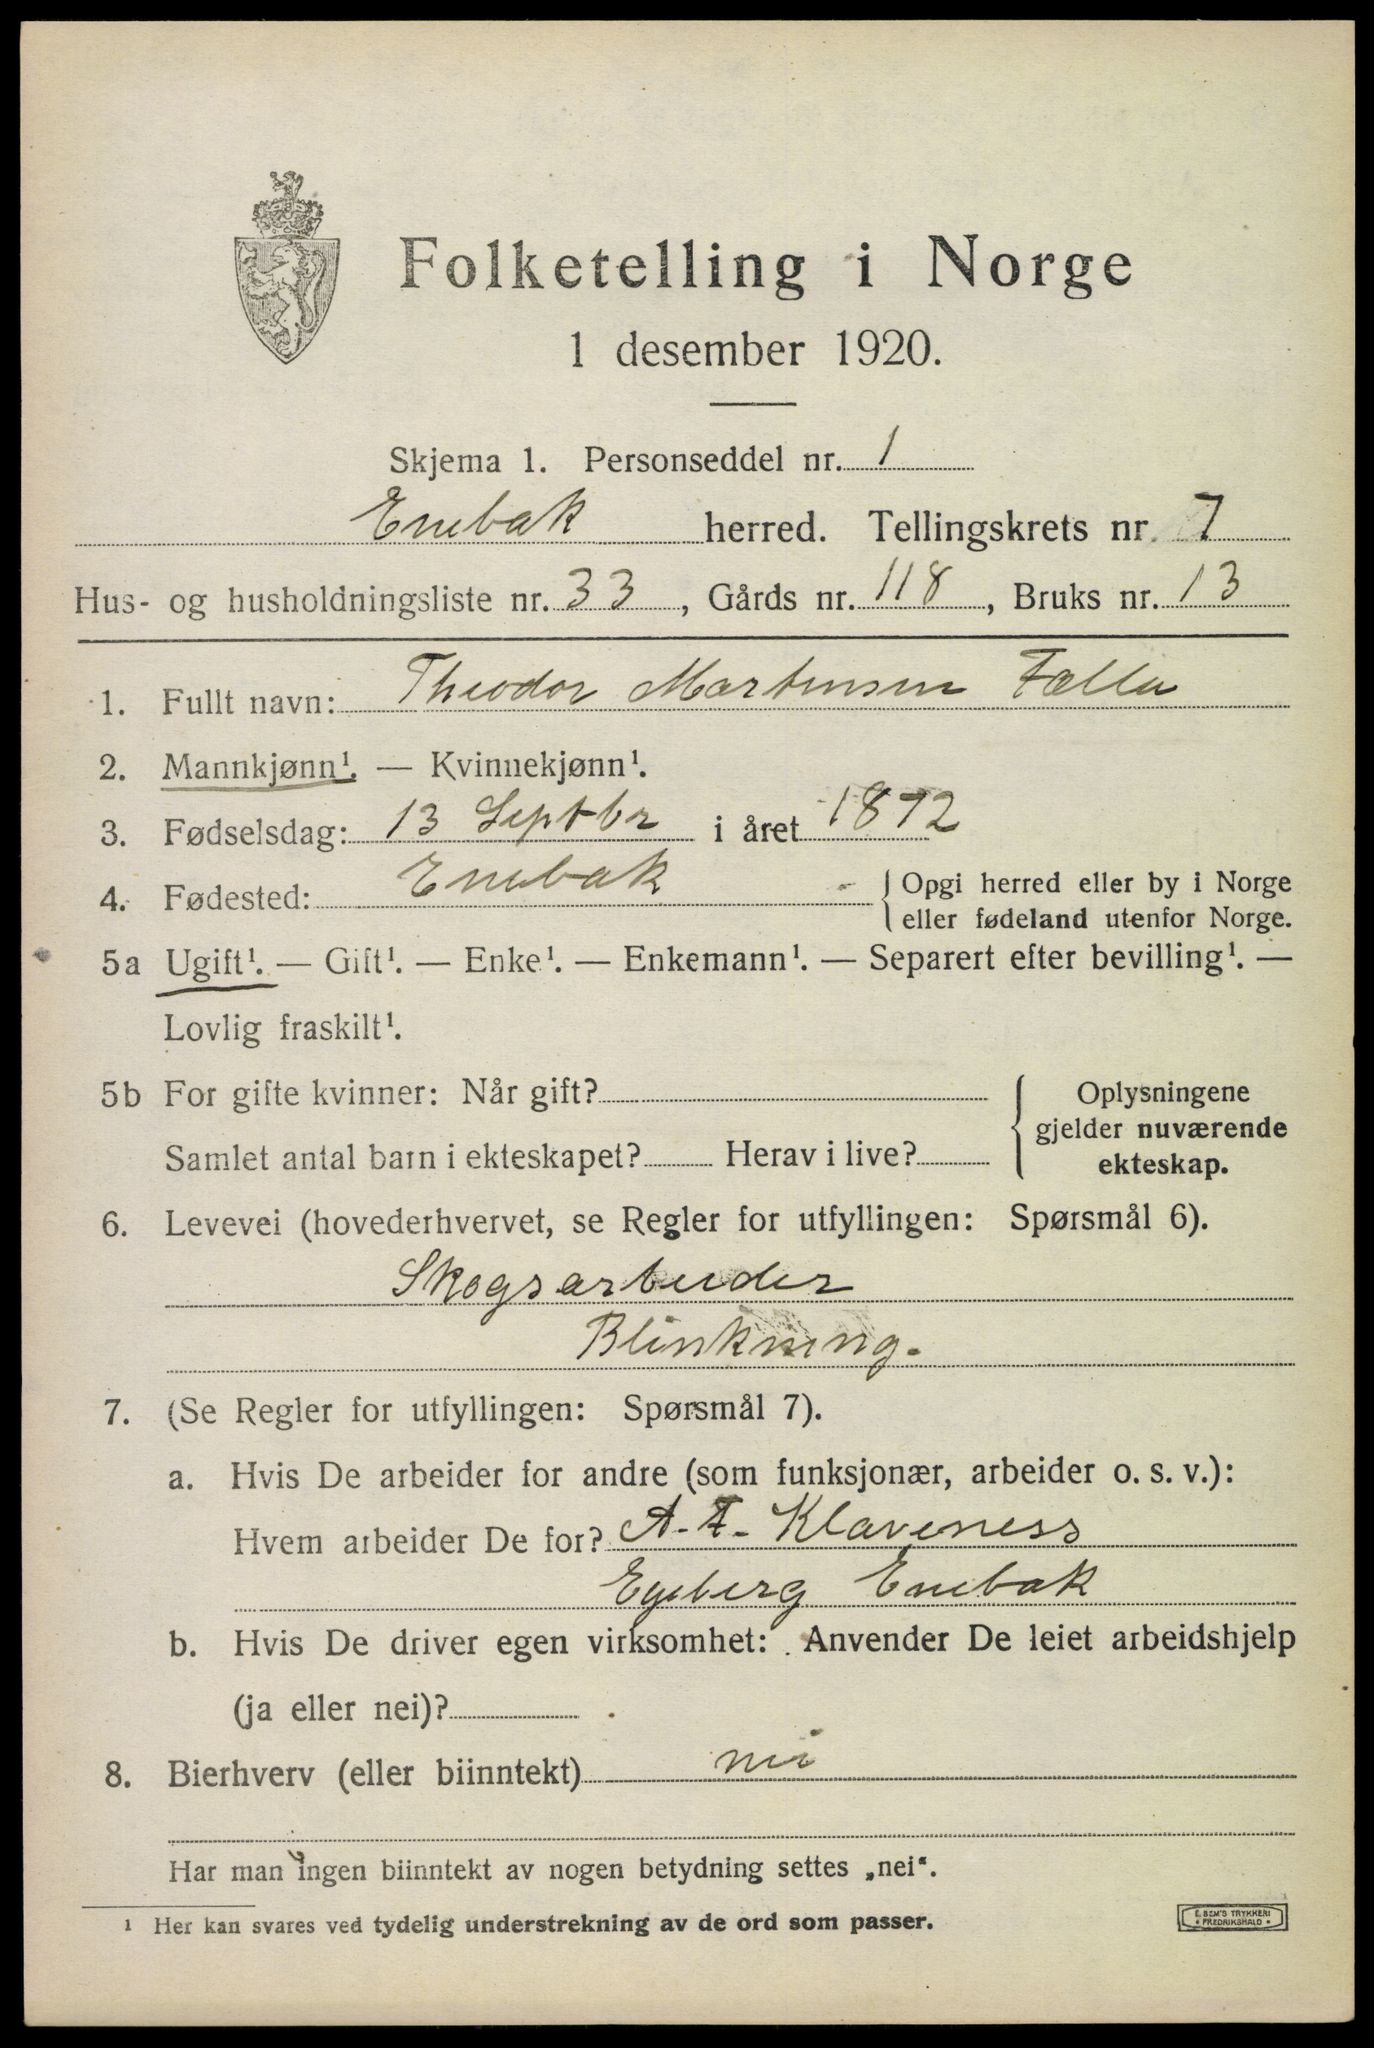 Folketelling i Norge
1 desember 1920.
Skjema 1. Personseddel nr. 1
Enebak herred. Tellingskrets nr. 7
Hus- og husholdningsliste nr. 33, Gårds nr. 118, Bruks nr. 13
1. Fullt navn: Theodor Martinsen
2. Mannkjønn¹. — Kvinnekjønn¹.
3. Fødselsdag: 13 Septbr i året 1872
4. Fødested: Enebak { Opgi herred eller by i Norge
eller fødeland utenfor Norge.
5a Ugift¹. — Gift¹. — Enke¹. — Enkemann¹. — Separert efter bevilling¹. —
Lovlig fraskilt¹.
5b For gifte kvinner: Når gift? { Oplysningene
gjelder nuværende
Samlet antal barn i ekteskapet? Herav i live?
ekteskap.
6. Levevei (hovederhvervet, se Regler for utfyllingen: Spørsmål 6).
Skogsarbeider
Blinkning.
7. (Se Regler for utfyllingen: Spørsmål 7).
a. Hvis De arbeider for andre (som funksjonær, arbeider o. s. v.):
Hvem arbeider De for? A. F. Klaveness
Egeberg Enebak
b. Hvis De driver egen virksomhet: Anvender De leiet arbeidshjelp
(ja eller nei)?
8. Bierhverv (eller biinntekt) nei
Har man ingen biinntekt av nogen betydning settes „nei“.
¹ Her kan svares ved tydelig understrekning av de ord som passer.
E. SEM'S TRYKKERI
• FREDRIKSHALD •